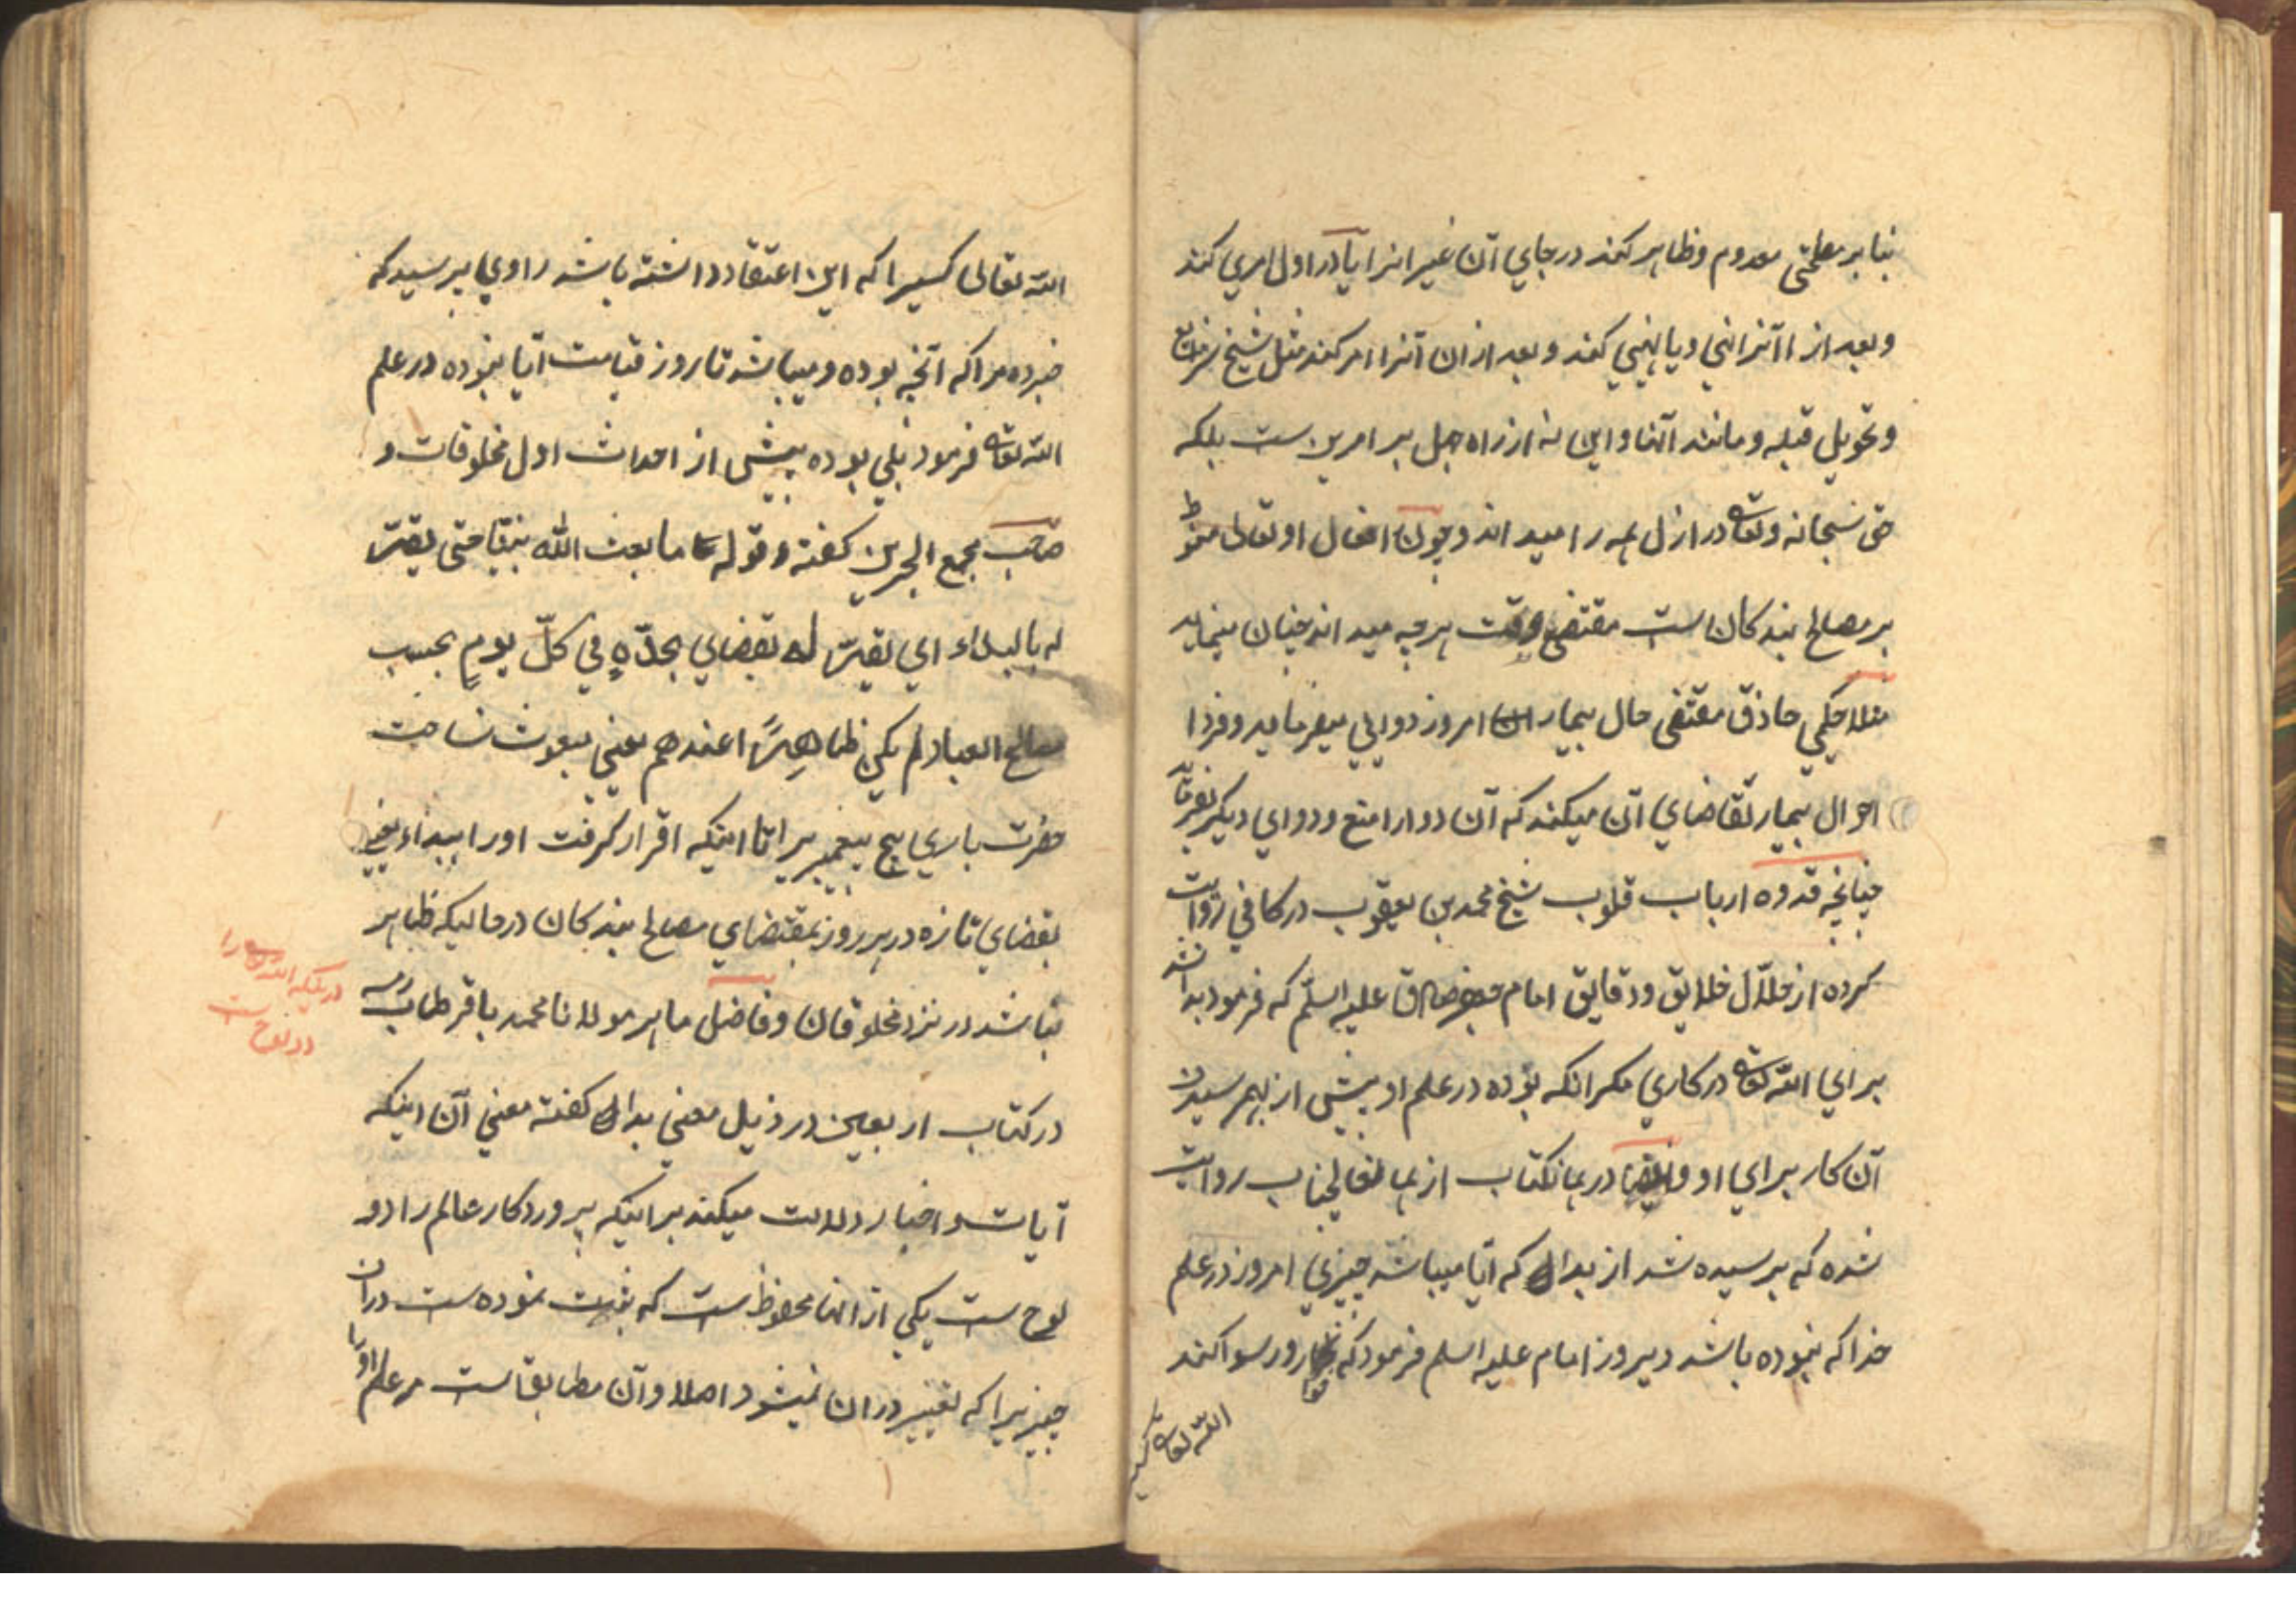 بنا بر مصلحتی معدوم و ظاهر کند در جای آن غیر انرا یا در اول امری کند
و بعد از آنرا نهی و یا نهی کند و بعد ازان آنرا امر کند مثل نسخ شرایع
و تحویل قبله و مانند آنها و این نه از راه جهل بر امرین ست بلکه
حق سبحانه و تعالی در ازل همه را میداند و چون افعال او تعالی منوط
بر مصالح بندکان ست مقتضی وقت هر چه میداند چنان مینماید
مثلا حکیمی حاذق مقتضی حال بیمار امروز دوایی میفرماید و فردا
احوال بیمار تقاضای آن میکند که آن دوا را منع و دوای دیکر بفرماید
چنانچه قدوه ارباب قلوب شیخ محمد بن یعقوب در کافی روایت
کرده از حلال خلایق و دقایق امام جعفر صادق علیه السلم که فرمود بدا نشد
برای الله تعالی در کاری مکر انکه بوده در علم او پیش از بهم رسیدن
آن کار برای او و ایضا در همانکتاب از همان عالیجناب روایت
شده که پرسیده شد از بدا که آیا میباشد چیزی امروز در علم
خدا که نبوده باشد دیروز امام علیه السلم فرمود که نه خوار و رسوا کند
الله تعالی کسیرا
الله تعالی کسیرا که این اعتقاد داشته باشد راوی پرسید که
خبر ده مرا که آنچه بوده و میباشد تا روز قیامت آیا نبوده در علم
الله تعالی فرمود بلی بوده پیش از احداث اول مخلوقات و
صاحب مجمع البحرین کفته و قوله ما بعث الله نبیّا حتی یقرّ
له بالبداء ای یقرّ له بقضای مجدّدٍ فی کلّ یومٍ بحسب
مصالح العباد لم یکن ظاهِرًا عندهم یعنی مبعوث نساخت
حضرت باری هیچ پیغمبریرا تا اینکه اقرار کرفت او را ببداء یعنی
بقضای تازه در هر روز بمقتضای مصالح بندکان در حالیکه ظاهر
نباشد در نزد مخلوقان و فاضل ماهر مولانا محمد باقر طاب رمسه
در کتاب اربعین در ذیل معنی بدا کفته معنی آن اینکه
آیات و اخبار دلالت میکند بر اینکه پروردکار عالم را دو
لوح ست یکی از انها محفوظ ست که ثبت نموده ست در ان
چیزیرا که تغییر در ان نمیشود اصلا و آن مطابق است مر علم او را
در بیان اینکه الله تعالی را
دو لوح ست